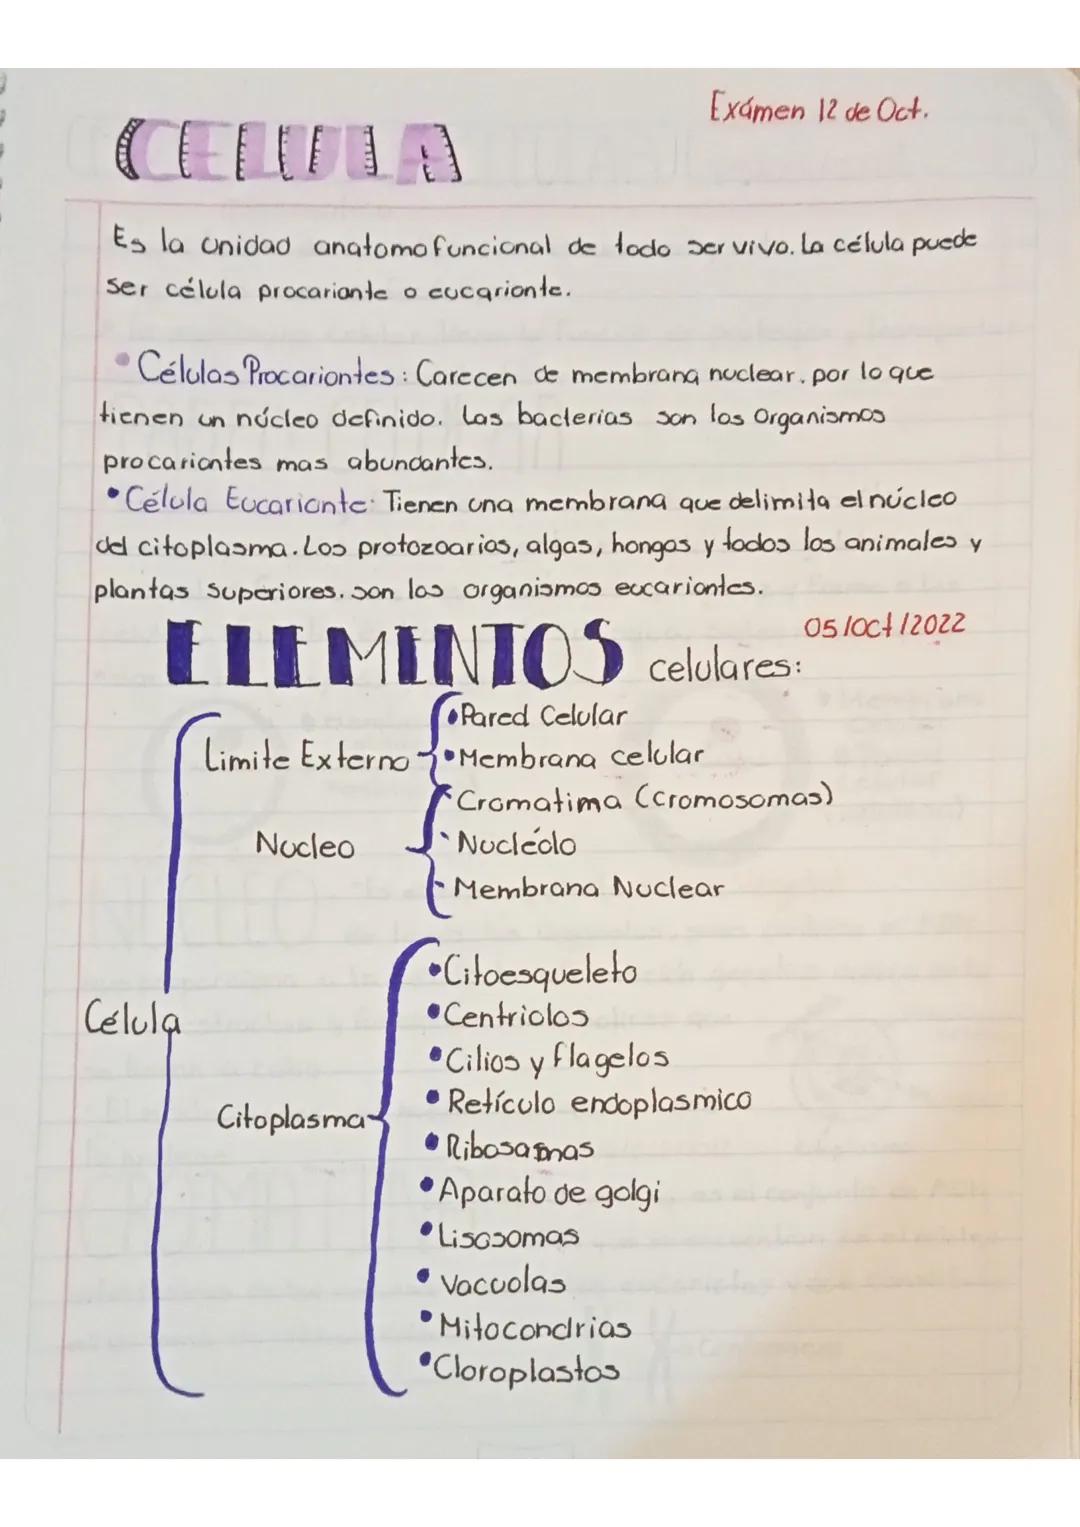 Exámen 12 de Oct.
CELULA
Es la unidad anatomofuncional de todo ser vivo. La célula puede
ser célula procarionte o eucarionte.
• Células Procariontes: Carecen de membrana nuclear, por lo que
tienen un núcleo definido. Las bacterias son los Organismos
procariontes mas abundantes.
• Célula Eucarionte: Tienen una membrana que delimita el núcleo
del citoplasma. Los protozoarios, algas, hongos y todos los animales y
plantas superiores. son los organismos eucariontes.
05/Oct/2022
ELEMENTOS celulares:
• Pared Celular
Limite Externo • Membrana celular
Cromatima (cromosomas)
Nucleo • Nucléolo
• Membrana Nuclear
• Citoesqueleto
Célula • Centriolos
• Cilios y flagelos
• Retículo endoplasmico
Citoplasma
• Ribosomas
• Aparato de golgi
• Lisosomas
• Vacuolas
• Mitocondrias
• Cloroplastos